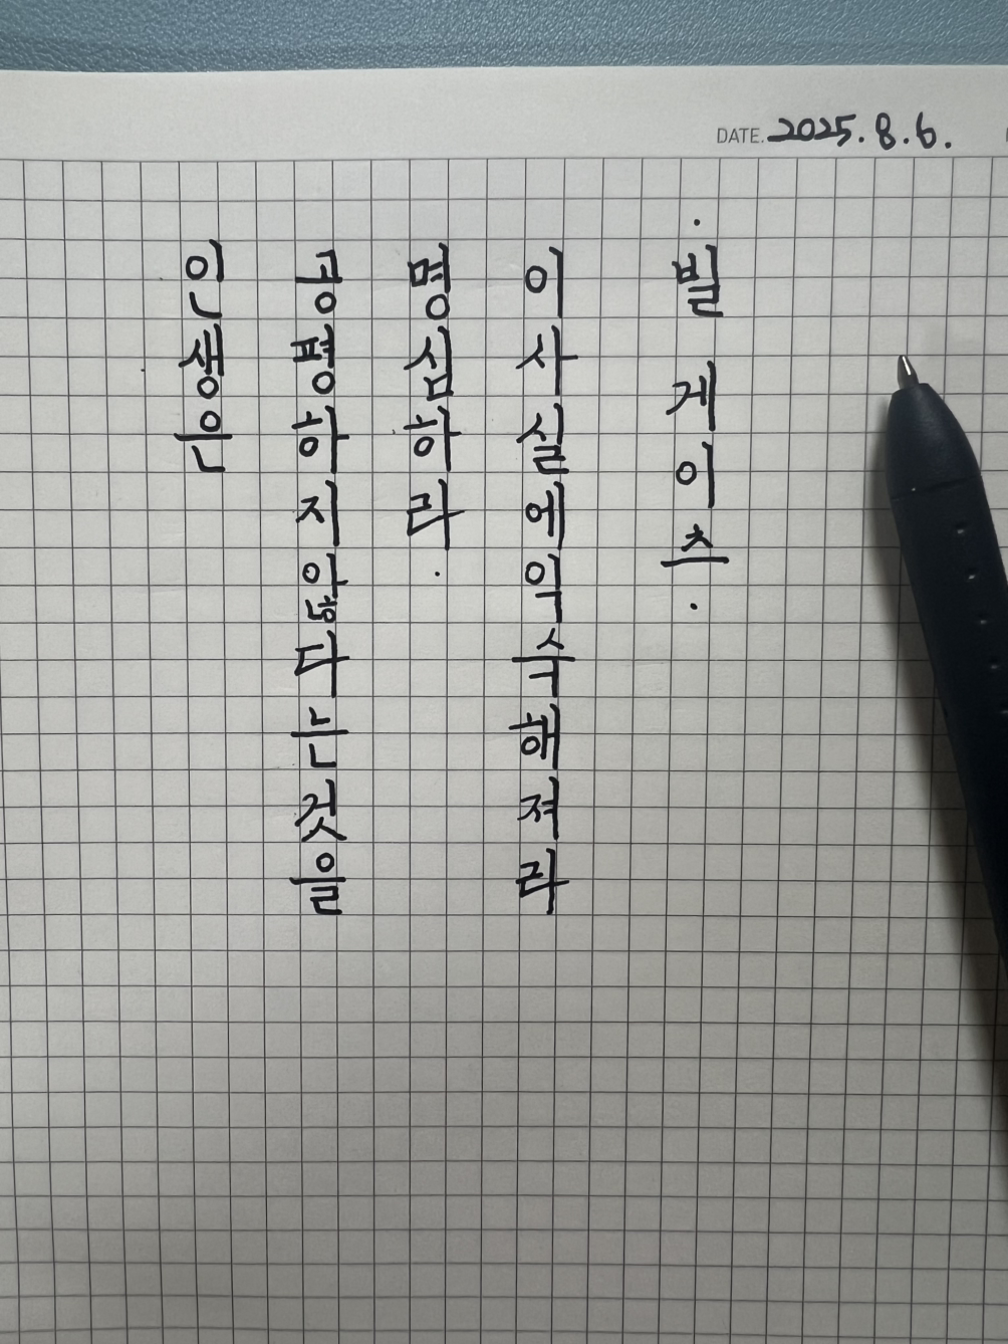 DATE. 2025. 8. 6.
인생은
공평하지않다는것을
명심하라.
이사실에익숙해져라
· 빌 게이츠 ·